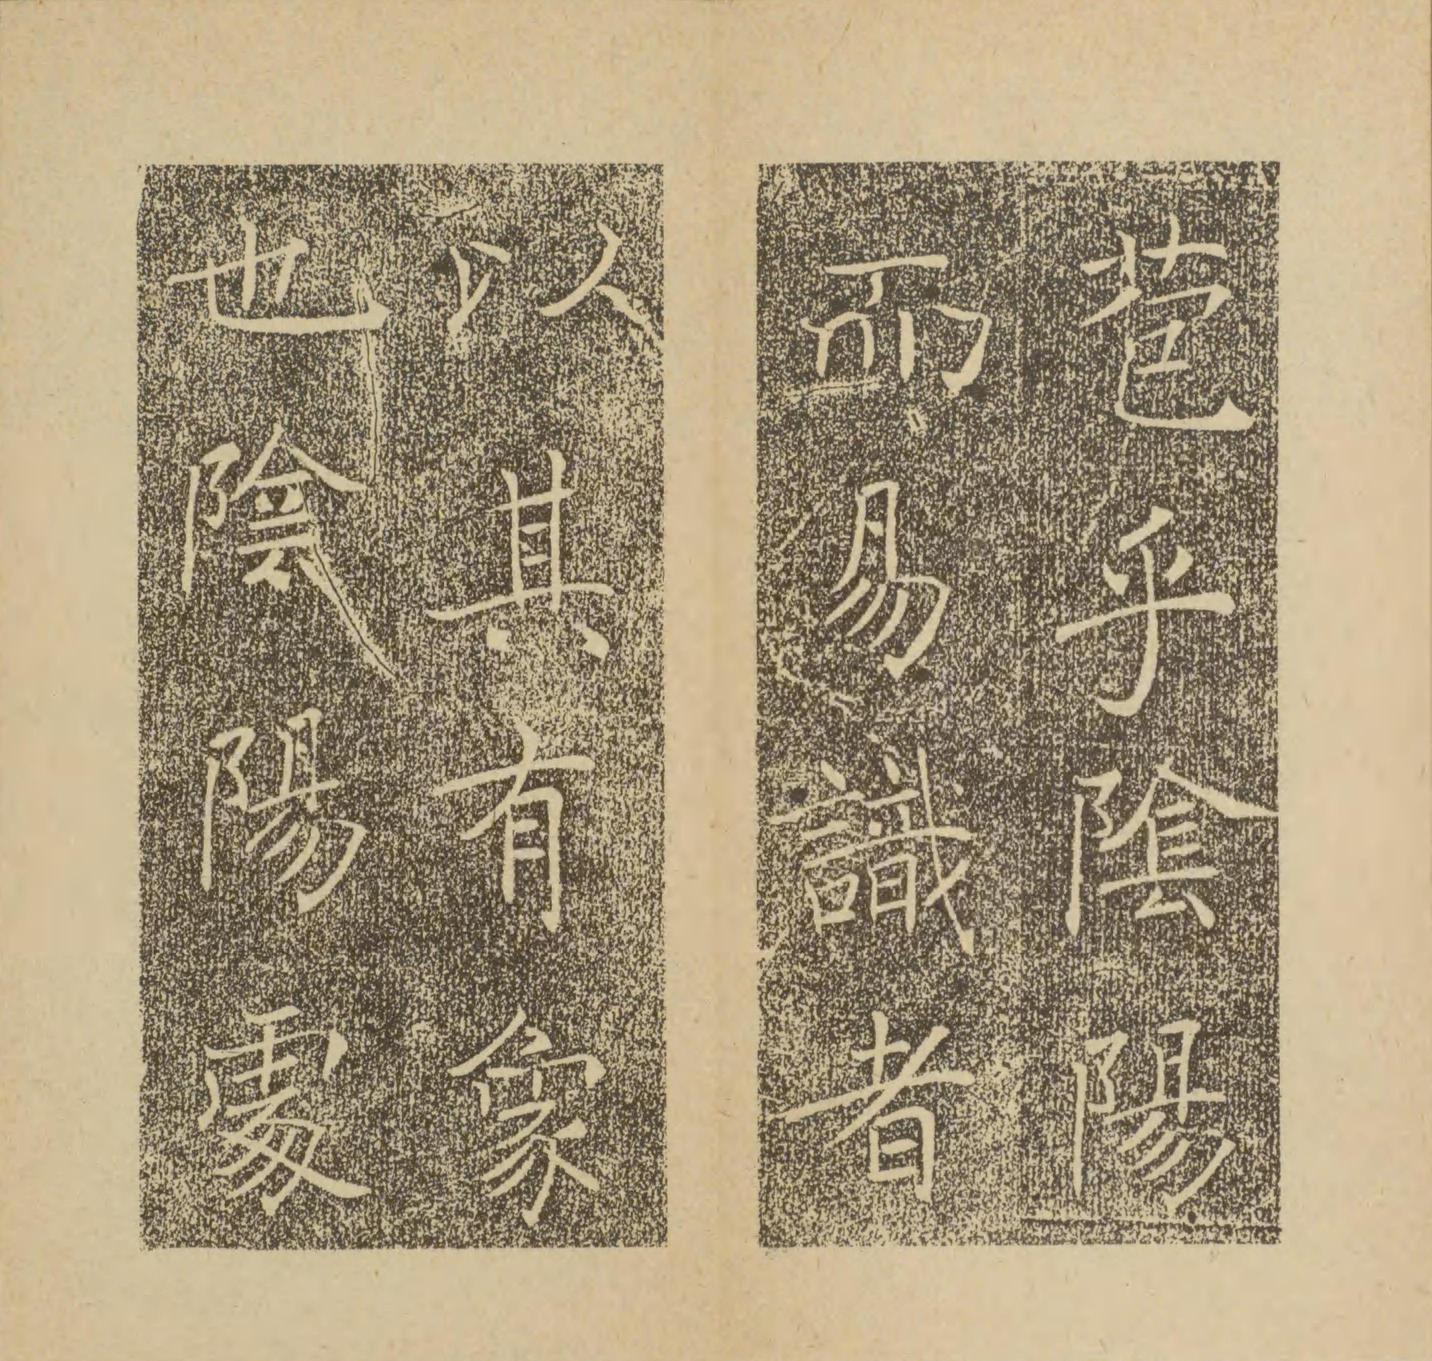 苞乎陰陽
而易識者
以其有象
也陰陽處